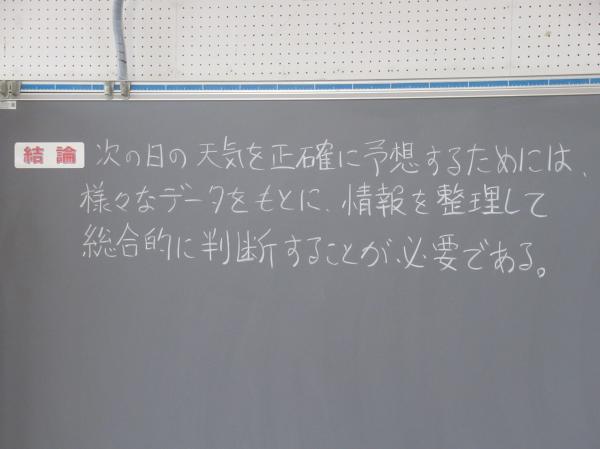 結論 次の日の天気を正確に予想するためには、
様々なデータをもとに、情報を整理して
総合的に判断することが必要である。